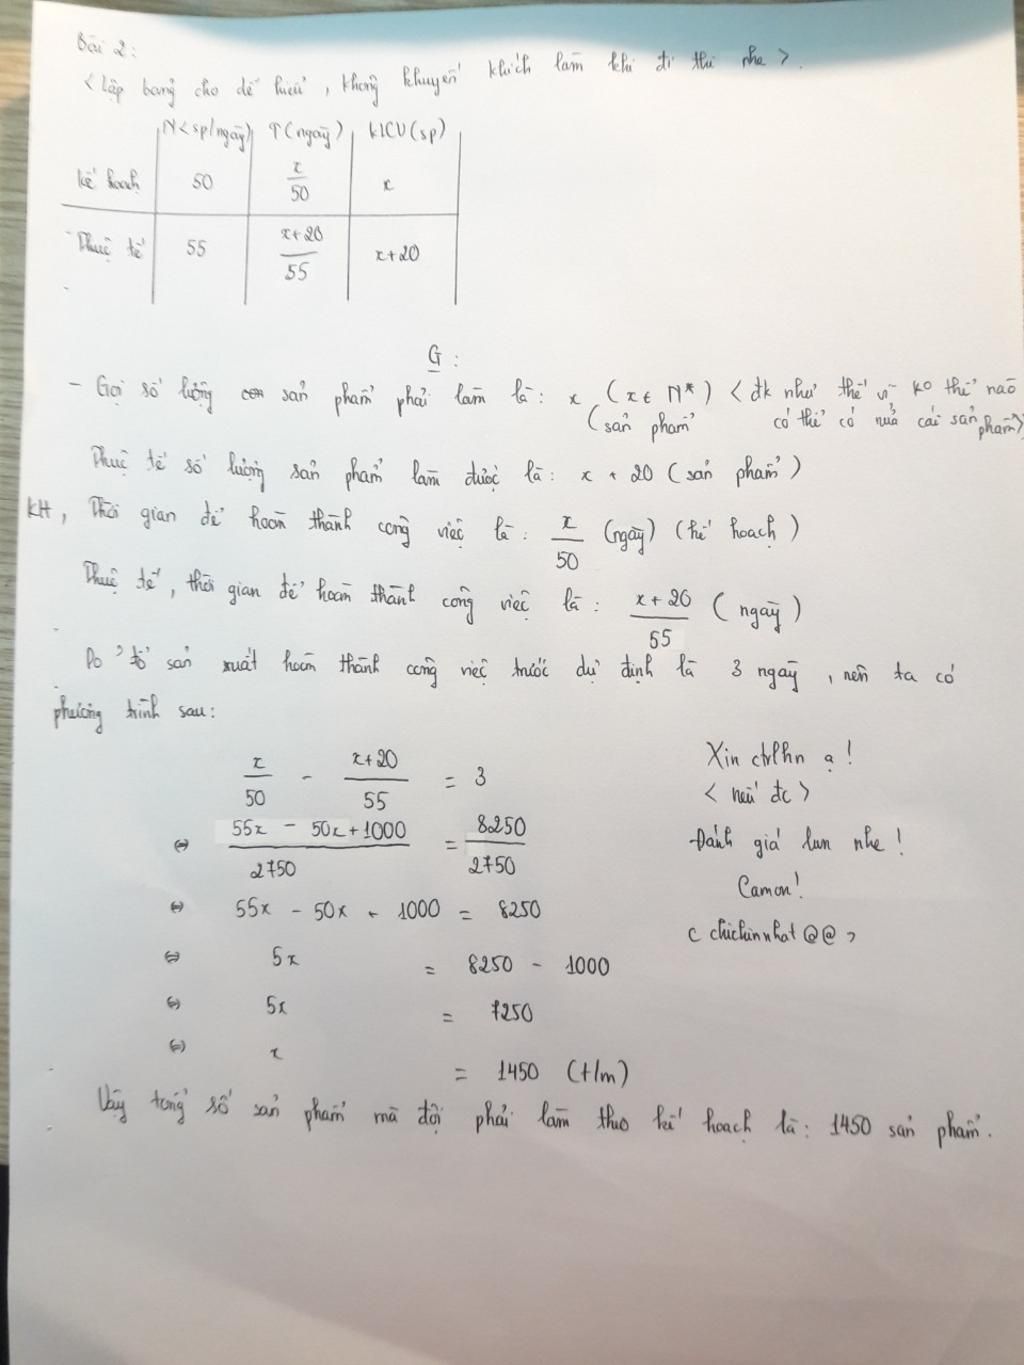 Bài 2:
< Lập bảng cho dễ hiểu, không khuyến khích làm khi đi thi nha >.
N<sp/ngày) T(ngày) KLCV(sp)
Kế hoạch 50 x/50 x
Thực tế 55 x+20/55 x+20
G:
- Gọi số lượng sản phẩm phải làm là: x (x ∈ N*) < đk như thế vì ko thể nào
(sản phẩm có thể có nửa cái sản phẩm)
Thực tế số lượng sản phẩm làm được là: x + 20 (sản phẩm)
KH, Thời gian để hoàn thành công việc là: x/50 (ngày) (kế hoạch)
Thực tế, thời gian để hoàn thành công việc là: x+20/55 (ngày)
Do tổ sản xuất hoàn thành công việc trước dự định là 3 ngày, nên ta có
phương trình sau:
x/50 - x+20/55 = 3
⇔ 55x - 50x + 1000/2750 = 8250/2750
⇔ 55x - 50x + 1000 = 8250
⇔ 5x = 8250 - 1000
⇔ 5x = 7250
⇔ x = 1450 (t/m)
Xin ctrlhn ạ!
< nếu đc >
Đánh giá lun nhe!
Camon!
< chichinnhat @@ >
Vậy tổng số sản phẩm mà đội phải làm theo kế hoạch là: 1450 sản phẩm.